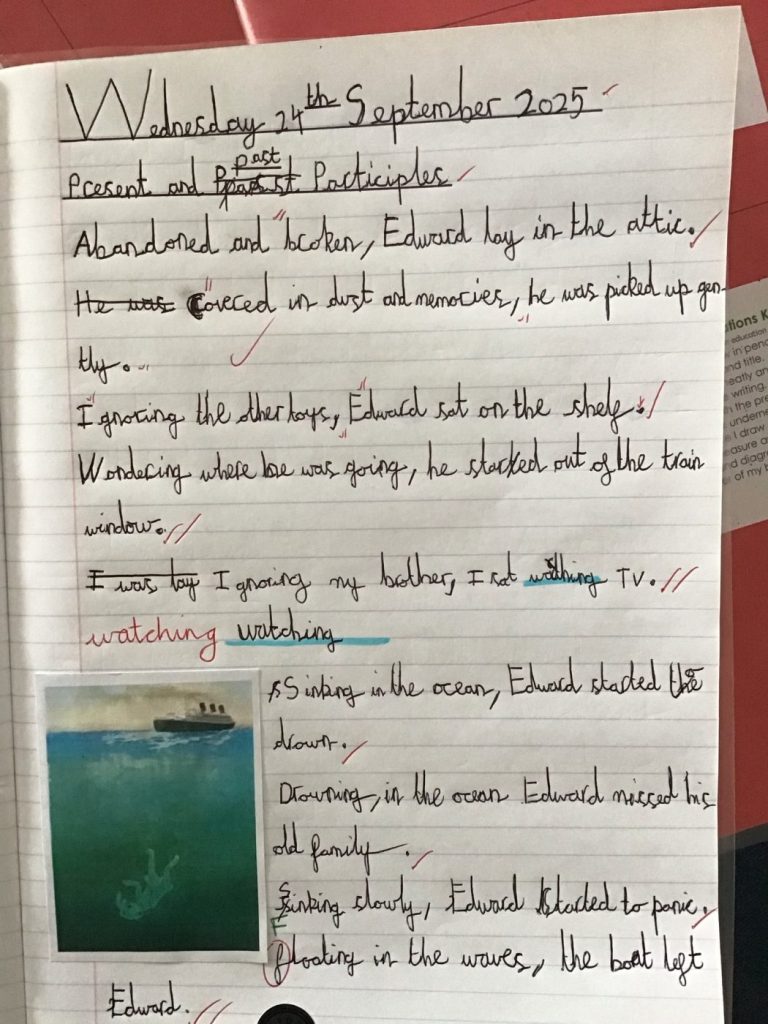 Wednesday 24th September 2025
Present and past Participles
Abandoned and broken, Edward lay in the attic.
He was Covered in dust and memories, he was picked up gen-
tly.
Ignoring the other toys, Edward sat on the shelf.
Wondering where he was going, he started out of the train
window.
I was lay Ignoring my brother, I sat wathing TV.
watching watching
Sinking in the ocean, Edward started to
drown.
Drowning, in the ocean Edward missed his
old family.
Sinking slowly, Edward started to panic.
Floating in the waves, the boat left
Edward.
tions K
education
in penc
nd title.
eatly an
writing.
n the pre
underne
I draw
easure a
d diagra
of my b